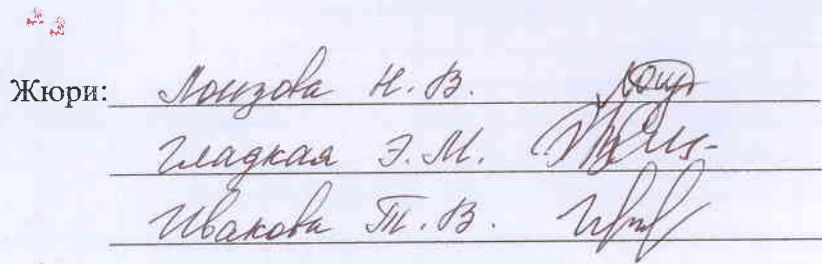 Жюри: Лоизова Н. В.
Гладкая Э. М.
Ивакова Т. В.